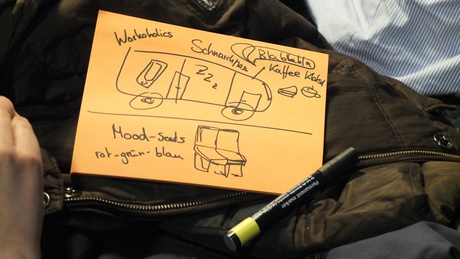 Workoholics
Schnarchzone
Blablabla
Kaffee Kabel
zzz
Mood-Seats
rot-grün-blau
Permanent marker